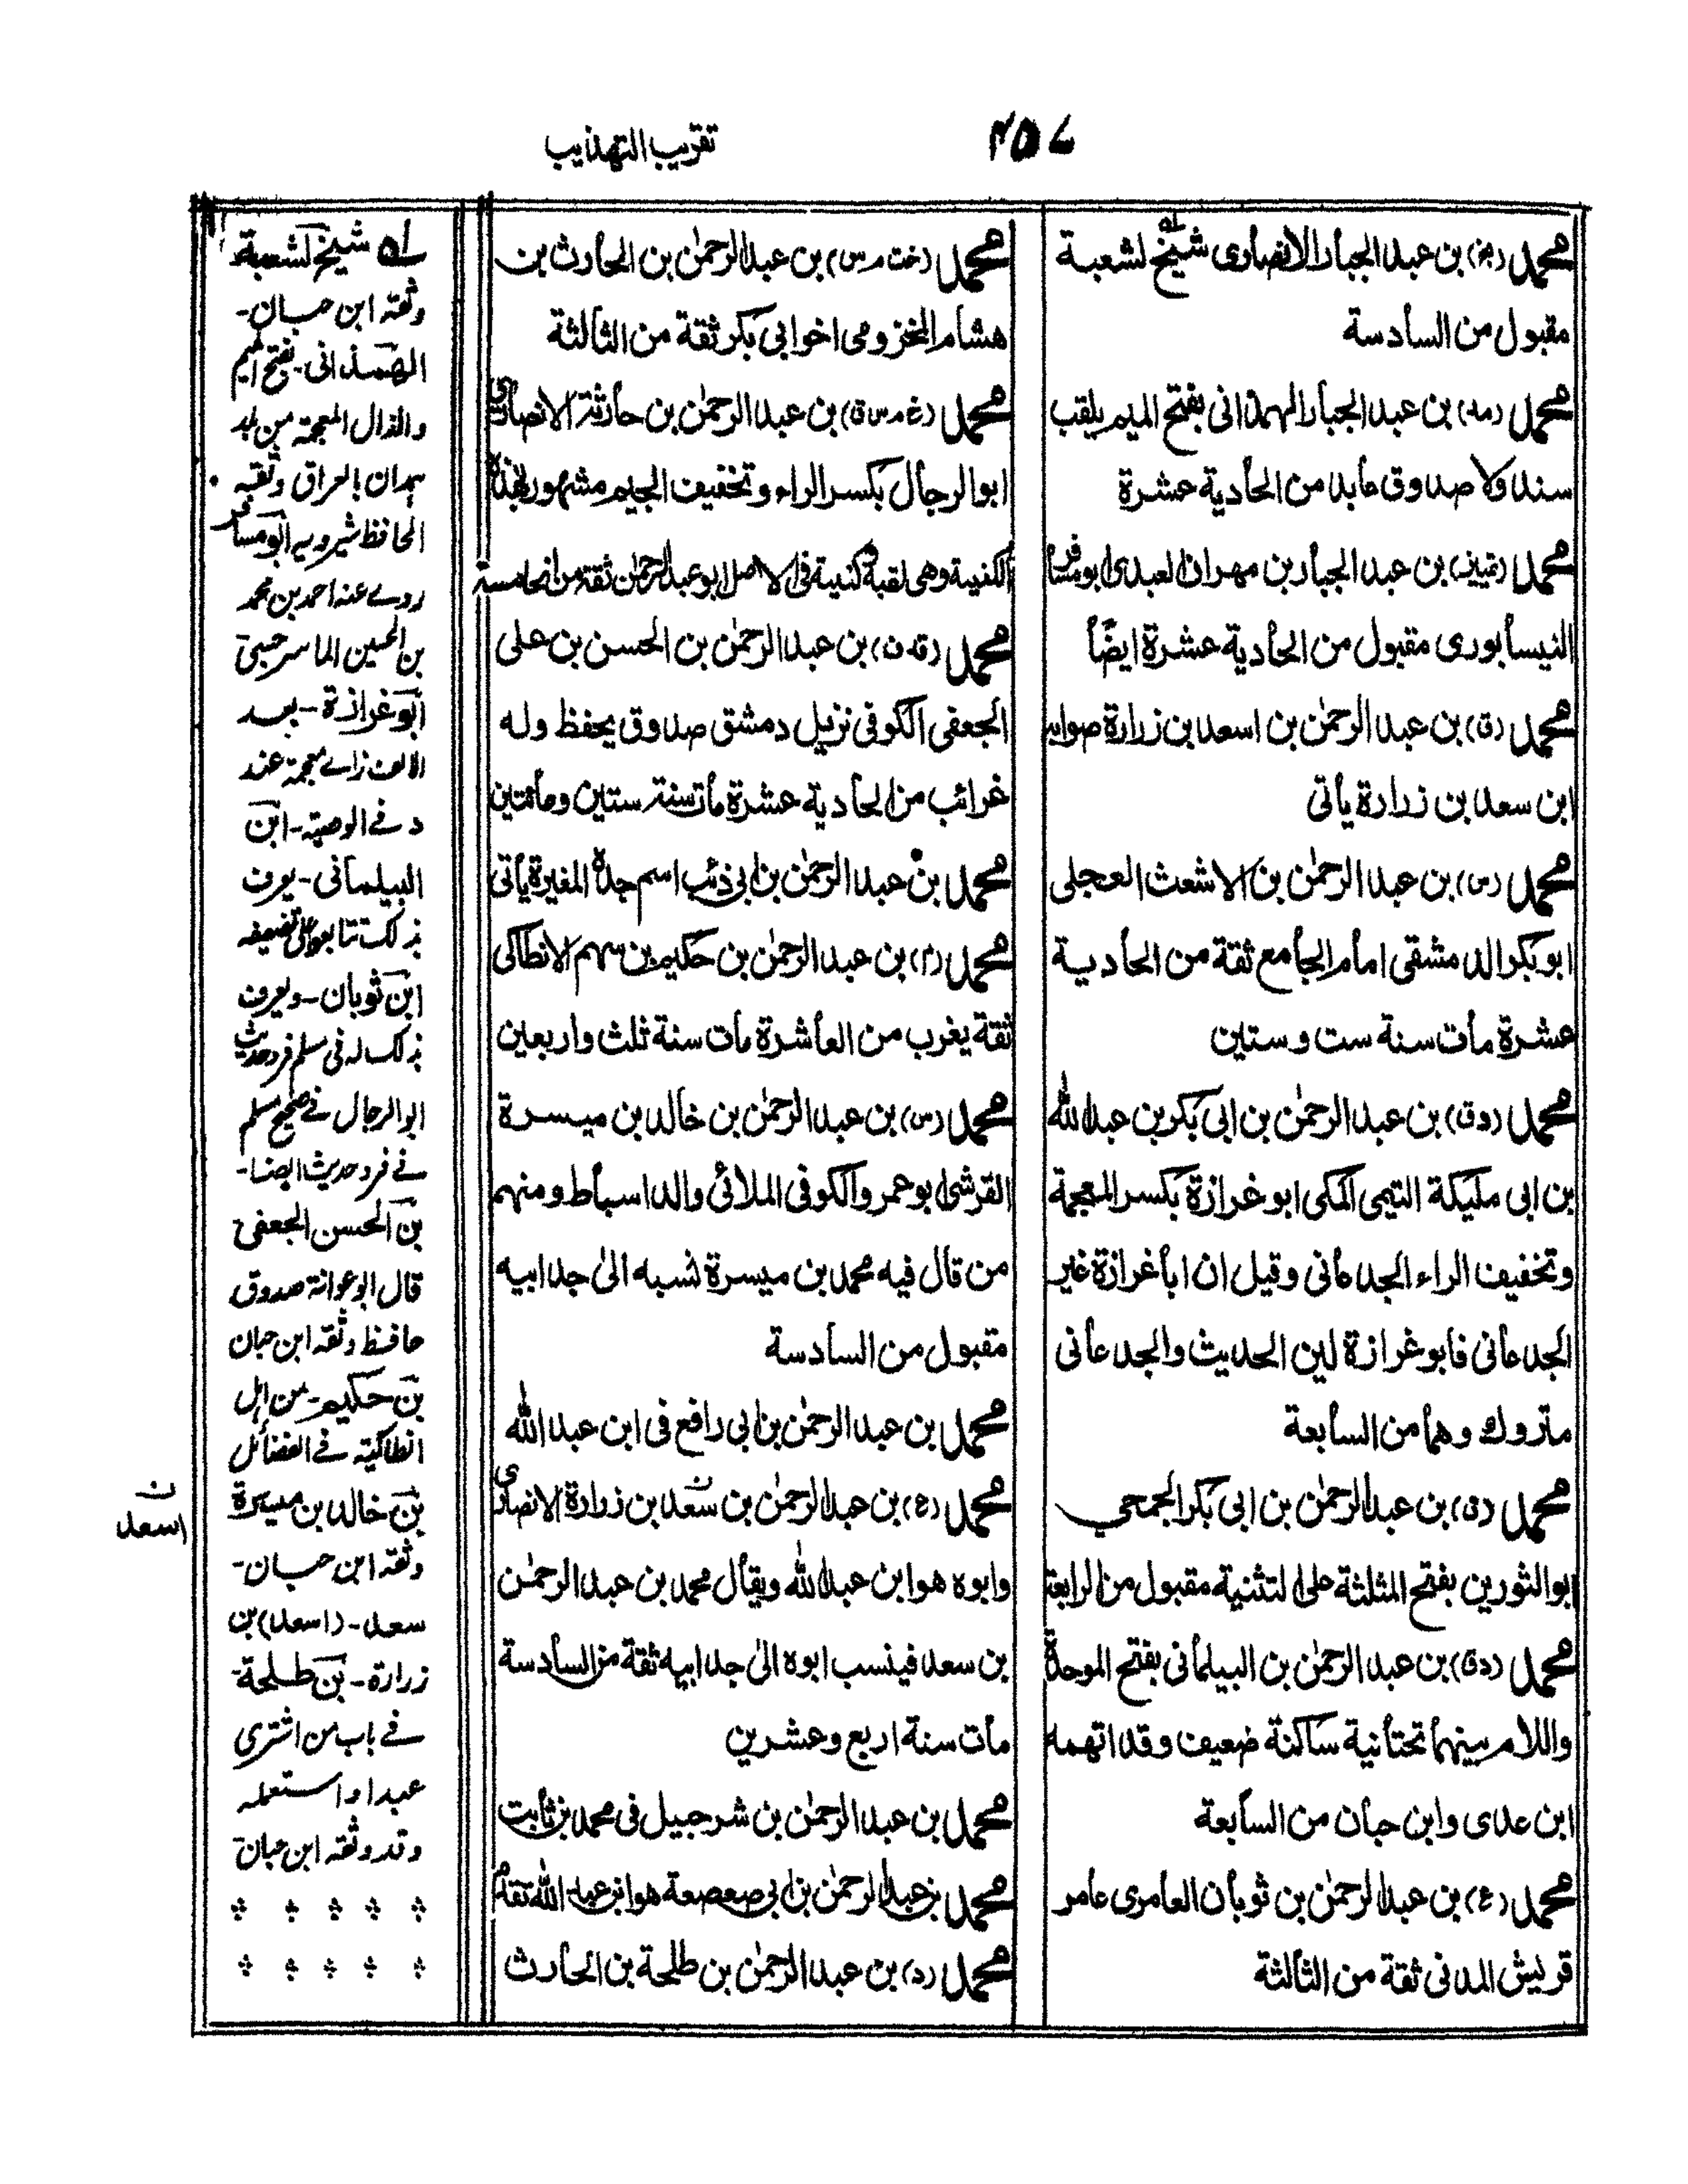 تقريب التهذيب
٤٥٧
محمد (بخ) بن عبد الجبار الانصارى شيخ لشعبة
مقبول من السادسة
محمد (مد) بن عبد الجبار الهمذانى بفتح الميم يلقب
سندولا صدوق عابد من الحادية عشرة
محمد (تمييز) بن عبد الجبار بن مهران العبدى ابو مسافر
النيسابورى مقبول من الحادية عشرة ايضًا
محمد (ق) بن عبد الرحمٰن بن اسعد بن زرارة صوابه
ابن سعد بن زرارة يأتى
محمد (س) بن عبد الرحمٰن بن الاشعث العجلى
ابو بكر الدمشقى امام الجامع ثقة من الحادية
عشرة مات سنة ست وستين
محمد (دق) بن عبد الرحمٰن بن ابى بكر بن عبد الله
بن ابى مليكة التيمى المكى ابو غرازة بكسر المعجمة
وتخفيف الراء الجدعانى وقيل ان ابا غرازة غير
الجدعانى فابو غرازة لين الحديث والجدعانى
متروك وهما من السابعة
محمد (ق) بن عبد الرحمٰن بن ابى بكر الجمحى
ابو الثورين بفتح المثلثة على التثنية مقبول من الرابعة
محمد (دق) بن عبد الرحمٰن بن البيلمانى بفتح الموحدة
واللام بينهما تحتانية ساكنة ضعيف وقد اتهمه
ابن عدى وابن حبان من السابعة
محمد (ع) بن عبد الرحمٰن بن ثوبان العامرى عامر
قريش المدنى ثقة من الثالثة
محمد (خت م س) بن عبد الرحمٰن بن الحارث بن
هشام المخزومى اخو ابى بكر ثقة من الثالثة
محمد (خ م س ق) بن عبد الرحمٰن بن حارثة الانصارى
ابو الرجال بكسر الراء وتخفيف الجيم مشهور بهذه
الكنية وهى لقبه وكنيته فى الاصل ابو عبد الرحمٰن ثقة من الخامسة
محمد (قد ن) بن عبد الرحمٰن بن الحسن بن على
الجعفى الكوفى نزيل دمشق صدوق يحفظ وله
غرائب من الحادية عشرة مات سنة ستين ومائتين
محمد بن عبد الرحمٰن بن ابى ذئب اسم جده المغيرة يأتى
محمد (م) بن عبد الرحمٰن بن حكيم بن سهم الانطاكى
ثقة يغرب من العاشرة مات سنة ثلث واربعين
محمد (س) بن عبد الرحمٰن بن خالد بن ميسرة
القرشى ابو عمرو الكوفى الملائى والد اسباط ومنهم
من قال فيه محمد بن ميسرة نسبه الىٰ جد ابيه
مقبول من السادسة
محمد بن عبد الرحمٰن بن ابى رافع فى ابن عبد الله
محمد (ع) بن عبد الرحمٰن بن سعد بن زرارة الانصارى
وابوه هو ابن عبد الله ويقال محمد بن عبد الرحمٰن
بن سعد فينسب ابوه الىٰ جد ابيه ثقة من السادسة
مات سنة اربع وعشرين
محمد بن عبد الرحمٰن بن شرحبيل فى محمد بن ثابت
محمد بن عبد الرحمٰن بن ابى صعصعة هو ابن عبد الله تقدم
محمد (د) بن عبد الرحمٰن بن طلحة بن الحارث
له شيخ لشعبة
وثقه ابن حبان-
الهمذانى- بفتح الميم
والذال المعجمة من بلد
همدان بالعراق وثقه
الحافظ شيرويه ابو مسافر
روے عنه احمد بن محمد
بن الحسين الماسرجسى
ابو غرازة - بعد
الالف زاے معجمة عند
د فے الوصية- ابن
البيلمانى- يعرف
بذلك تتابعوا على تضعيفه
ابن ثوبان- ويعرف
بذلك له فى مسلم فرد حديث
ابو الرجال فے صحيح مسلم
فے فرد حديث ايضا-
بن الحسن الجعفى
قال ابو عوانة صدوق
حافظ وثقه ابن حبان
بن حكيم- من اهل
انطاكية فے الفضائل
بن خالد بن ميسرة
وثقه ابن حبان-
سعد- (اسعد) بن
زرارة- بن طلحة-
فے باب من اشترى
عبدا واستعمله
وقد وثقه ابن حبان
ن
اسعد